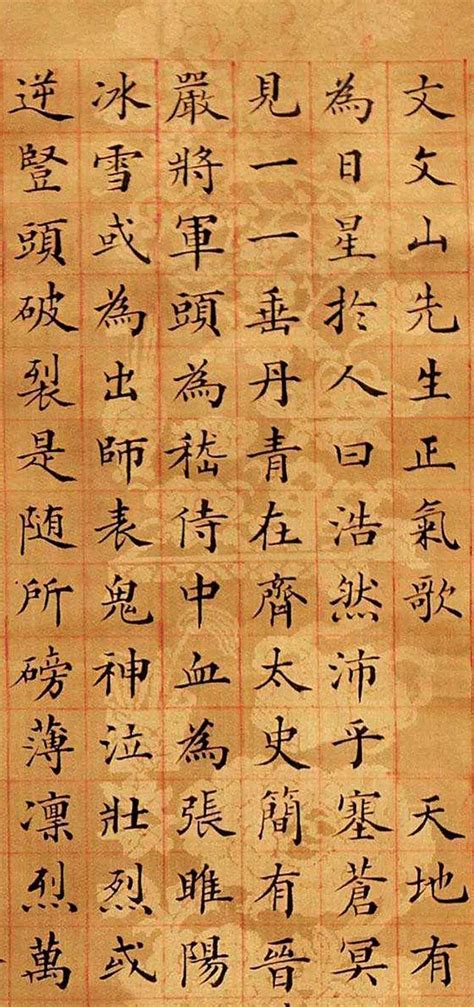 文文山先生正氣歌 天地有
為日星於人曰浩然沛乎塞蒼冥
見一一垂丹青在齊太史簡有晉
嚴將軍頭為嵇侍中血為張睢陽
冰雪或為出師表鬼神泣壯烈或
逆豎頭破裂是随所磅薄凛烈萬